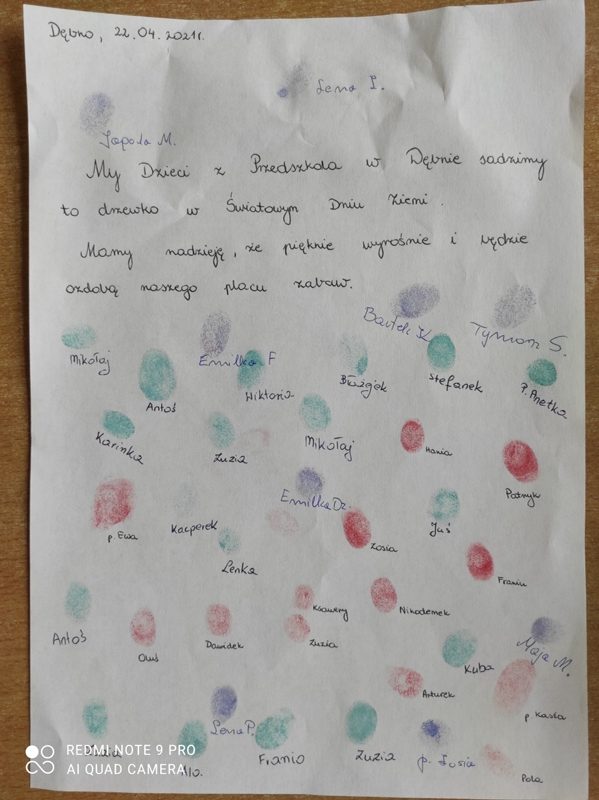 Dębno, 22.04.2021r.
Lena I.
Jagoda M.
My Dzieci z Przedszkola w Dębnie sadzimy
to drzewko w Światowym Dniu Ziemi.
Mamy nadzieję, że pięknie wyrośnie i będzie
ozdobą naszego placu zabaw.
Bartek K
Tymon S.
Mikołaj
Emilka F
Antoś
Wiktoria
Stefanek
P. Anetka
Karinka
Zuzia
Mikołaj
Hania
Patryk
p. Ewa
Kacperek
Emilka Dz.
Zosia
Juś
Lenka
Franiu
Antoś
Oluś
Dawidek
Ksawery
Zuzia
Nikodemek
Kuba
Maja M.
Arturek
p. Kasia
Lena P.
Franio
Zuzia
p. Zusia
Pola
REDMI NOTE 9 PRO
AI QUAD CAMERA